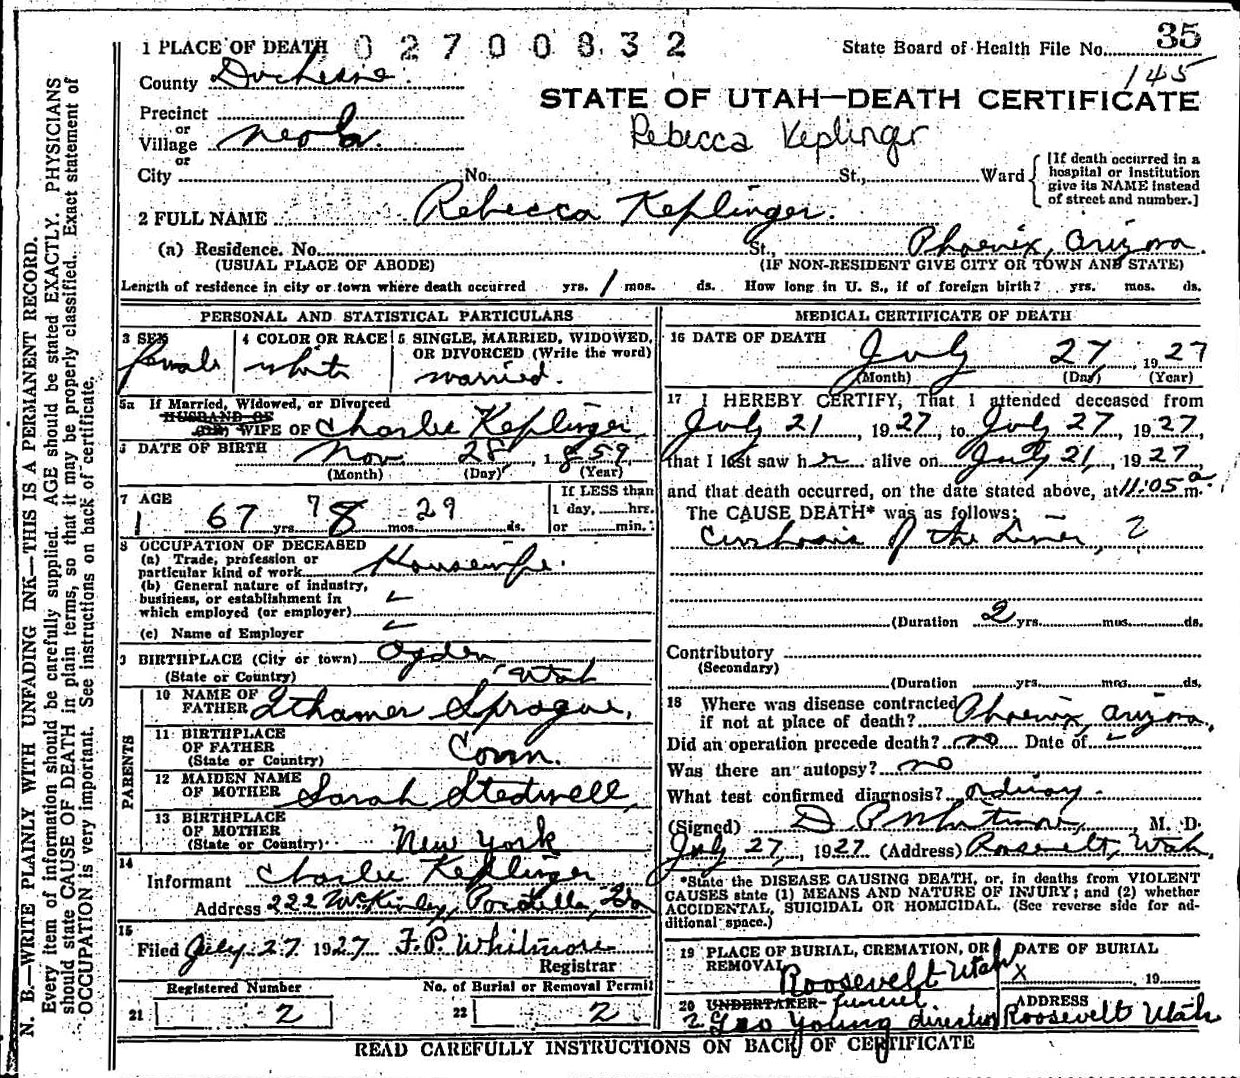 1 PLACE OF DEATH 02700832 State Board of Health File No. 35
145
County Duchesne
STATE OF UTAH—DEATH CERTIFICATE
Precinct
or
Village Neola
Rebecca Keplinger
or
City No. St., Ward
[If death occurred in a
hospital or institution
give its NAME instead
of street and number.]
2 FULL NAME Rebecca Keplinger.
(a) Residence. No. St., Phoenix, Arizona.
(USUAL PLACE OF ABODE) (IF NON-RESIDENT GIVE CITY OR TOWN AND STATE)
Length of residence in city or town where death occurred yrs. 1 mos. ds. How long in U. S., if of foreign birth? yrs. mos. ds.
PERSONAL AND STATISTICAL PARTICULARS
3 SEX
female
4 COLOR OR RACE
white
5 SINGLE, MARRIED, WIDOWED,
OR DIVORCED (Write the word)
married.
5a If Married, Widowed, or Divorced
HUSBAND OF
(OR) WIFE OF Charlie Keplinger
DATE OF BIRTH Nov. 28, 1859
(Month) (Day) (Year)
7 AGE
67 yrs. 7 8 mos. 29 ds.
If LESS than
1 day, hrs.
or min.
8 OCCUPATION OF DECEASED
(a) Trade, profession or
particular kind of work Housewife.
(b) General nature of industry,
business, or establishment in
which employed (or employer)
(c) Name of Employer
9 BIRTHPLACE (City or town) Ogden
(State or Country) Utah
PARENTS
10 NAME OF
FATHER Ithamer Sprague,
11 BIRTHPLACE
OF FATHER
(State or Country) Conn.
12 MAIDEN NAME
OF MOTHER Sarah Stedwell,
13 BIRTHPLACE
OF MOTHER
(State or Country) New York
14
Informant Charlie Keplinger
Address 222 McKinley, Pocatello, Ida
15
Filed July 27 1927 F. P. Whitmore
Registrar
Registered Number No. of Burial or Removal Permit
21 2 22 2
MEDICAL CERTIFICATE OF DEATH
16 DATE OF DEATH July 27, 1927
(Month) (Day) (Year)
17 I HEREBY CERTIFY, That I attended deceased from
July 21, 1927, to July 27, 1927,
that I last saw her alive on July 21, 1927
and that death occurred, on the date stated above, at 11:05 a m.
The CAUSE DEATH* was as follows:
Cirrhosis of the Liver, ?
(Duration 2 yrs. mos. ds.
Contributory
(Secondary)
(Duration yrs. mos. ds.
18 Where was disease contracted
if not at place of death? Phoenix, Arizona,
Did an operation precede death? no Date of
Was there an autopsy? no
What test confirmed diagnosis? ordinary.
(Signed) D P Whitmore, M. D.
July 27, 1927 (Address) Roosevelt, Utah,
*State the DISEASE CAUSING DEATH, or, in deaths from VIOLENT
CAUSES state (1) MEANS AND NATURE OF INJURY; and (2) whether
ACCIDENTAL, SUICIDAL OR HOMICIDAL. (See reverse side for ad-
ditional space.)
19 PLACE OF BURIAL, CREMATION, OR
REMOVAL
Roosevelt Utah
DATE OF BURIAL
X 19
20 UNDERTAKER funeral
Geo Young director
ADDRESS
Roosevelt Utah
READ CAREFULLY INSTRUCTIONS ON BACK OF CERTIFICATE
N. B.—WRITE PLAINLY WITH UNFADING INK—THIS IS A PERMANENT RECORD.
Every item of information should be carefully supplied. AGE should be stated EXACTLY. PHYSICIANS
should state CAUSE OF DEATH in plain terms, so that it may be properly classified. Exact statement of
OCCUPATION is very important. See instructions on back of certificate.